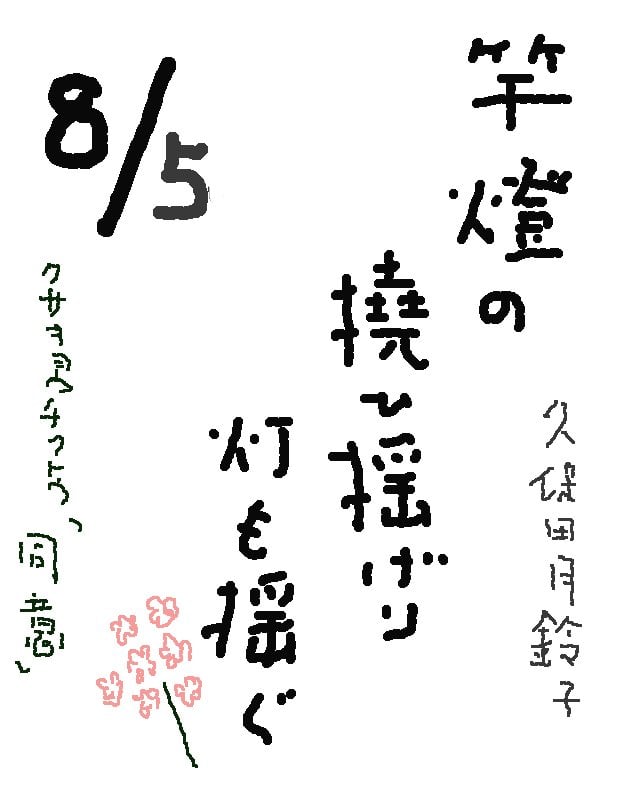 8/5
竿燈の
撓ひ揺げり
灯も揺ぐ
久保田月鈴子
クサキョウチクトウ、
同意、